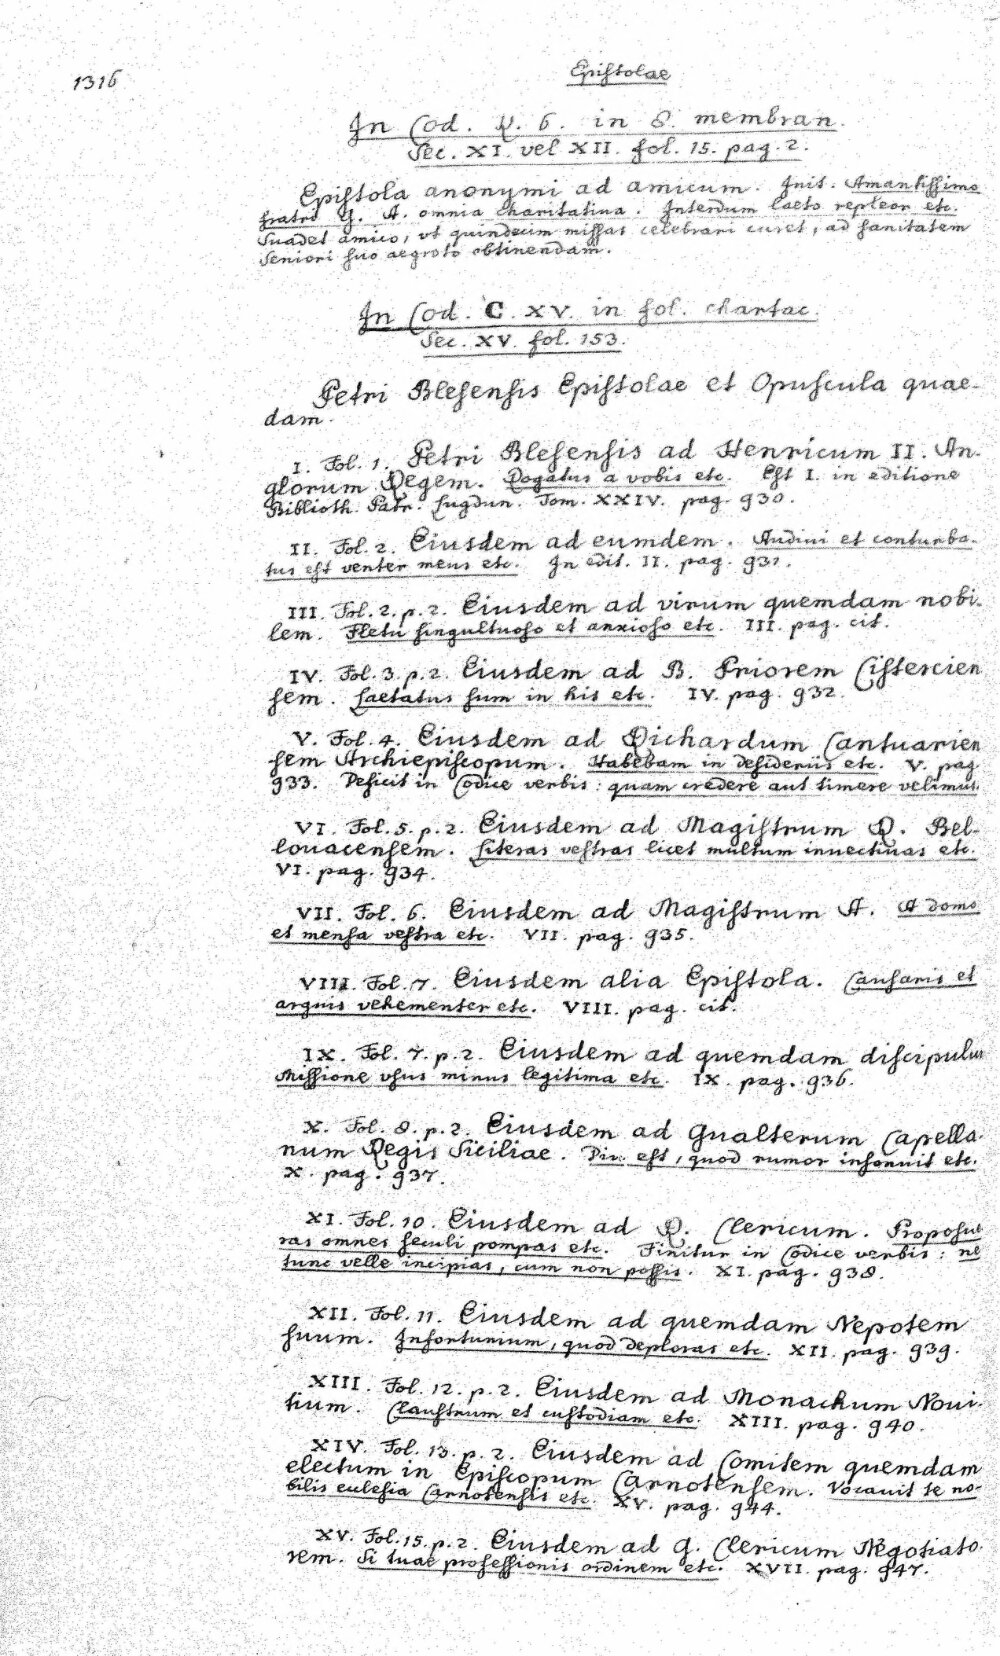 1316
Epistolae
In Cod. R. 6. in 8. membran.
Sec. XI. vel XII. fol. 15. pag. 2.
Epiſtola anonymi ad amicum. Init. Amantiſſimo
fratri G. A. omnia charitatiua. Interdum laeto repleor etc.
Suadet amico, vt quindecim miſſas celebrari curet, ad ſanitatem
Seniori ſuo aegroto obtinendam.
In Cod. C. XV. in fol. chartac.
Sec. XV. fol. 153.
Petri Bleſenſis Epiſtolae et Opuſcula quae-
dam.
I. Fol. 1. Petri Bleſenſis ad Henricum II. An-
glorum Regem. Rogatus a vobis etc. Eſt I. in editione
Biblioth. Patr. Lugdun. Tom. XXIV. pag. 930.
II. Fol. 2. Eiusdem ad eumdem. Audiui et conturba-
tus eſt venter meus etc. In edit. II. pag. 931.
III. Fol. 2. p. 2. Eiusdem ad virum quemdam nobi-
lem. Fletu ſingultuoſo et anxioſo etc. III. pag. cit.
IV. Fol. 3. p. 2. Eiusdem ad B. Priorem Ciſtercien
ſem. Laetatus ſum in his etc. IV. pag. 932.
V. Fol. 4. Eiusdem ad Richardum Cantuarien
ſem Archiepiſcopum. Habebam in deſideriis etc. V. pag
933. Deficit in Codice verbis: quam credere aut timere velimus.
VI. Fol. 5. p. 2. Eiusdem ad Magiſtrum R. Bel-
louacenſem. Literas veſtras licet multum inuectiuas etc.
VI. pag. 934.
VII. Fol. 6. Eiusdem ad Magiſtrum A. A domo
et menſa veſtra etc. VII. pag. 935.
VIII. Fol. 7. Eiusdem alia Epiſtola. Cauſaris et
arguis vehementer etc. VIII. pag. cit.
IX. Fol. 7. p. 2. Eiusdem ad quemdam diſcipulum
Miſſione vſus minus legitima etc. IX. pag. 936.
X. Fol. 8. p. 2. Eiusdem ad Gualterum Capella-
num Regis Siciliae. Diu eſt, quod rumor inſonuit etc.
X. pag. 937.
XI. Fol. 10. Eiusdem ad R. Clericum. Propoſue
ras omnes ſeculi pompas etc. Finitur in Codice verbis: ne
tunc velle incipias, cum non poſſis. XI. pag. 938.
XII. Fol. 11. Eiusdem ad quemdam Nepotem
ſuum. Infortunium, quod deploras etc. XII. pag. 939.
XIII. Fol. 12. p. 2. Eiusdem ad Monachum Noui-
tium. Clauſtrum et cuſtodiam etc. XIII. pag. 940.
XIV. Fol. 13. p. 2. Eiusdem ad Comitem quemdam
electum in Epiſcopum Carnotenſem. Vocauit te no-
bilis eccleſia Carnotenſis etc. XV. pag. 944.
XV. Fol. 15. p. 2. Eiusdem ad G. Clericum Negotiato-
rem. Si tuae profeſſionis ordinem etc. XVII. pag. 947.